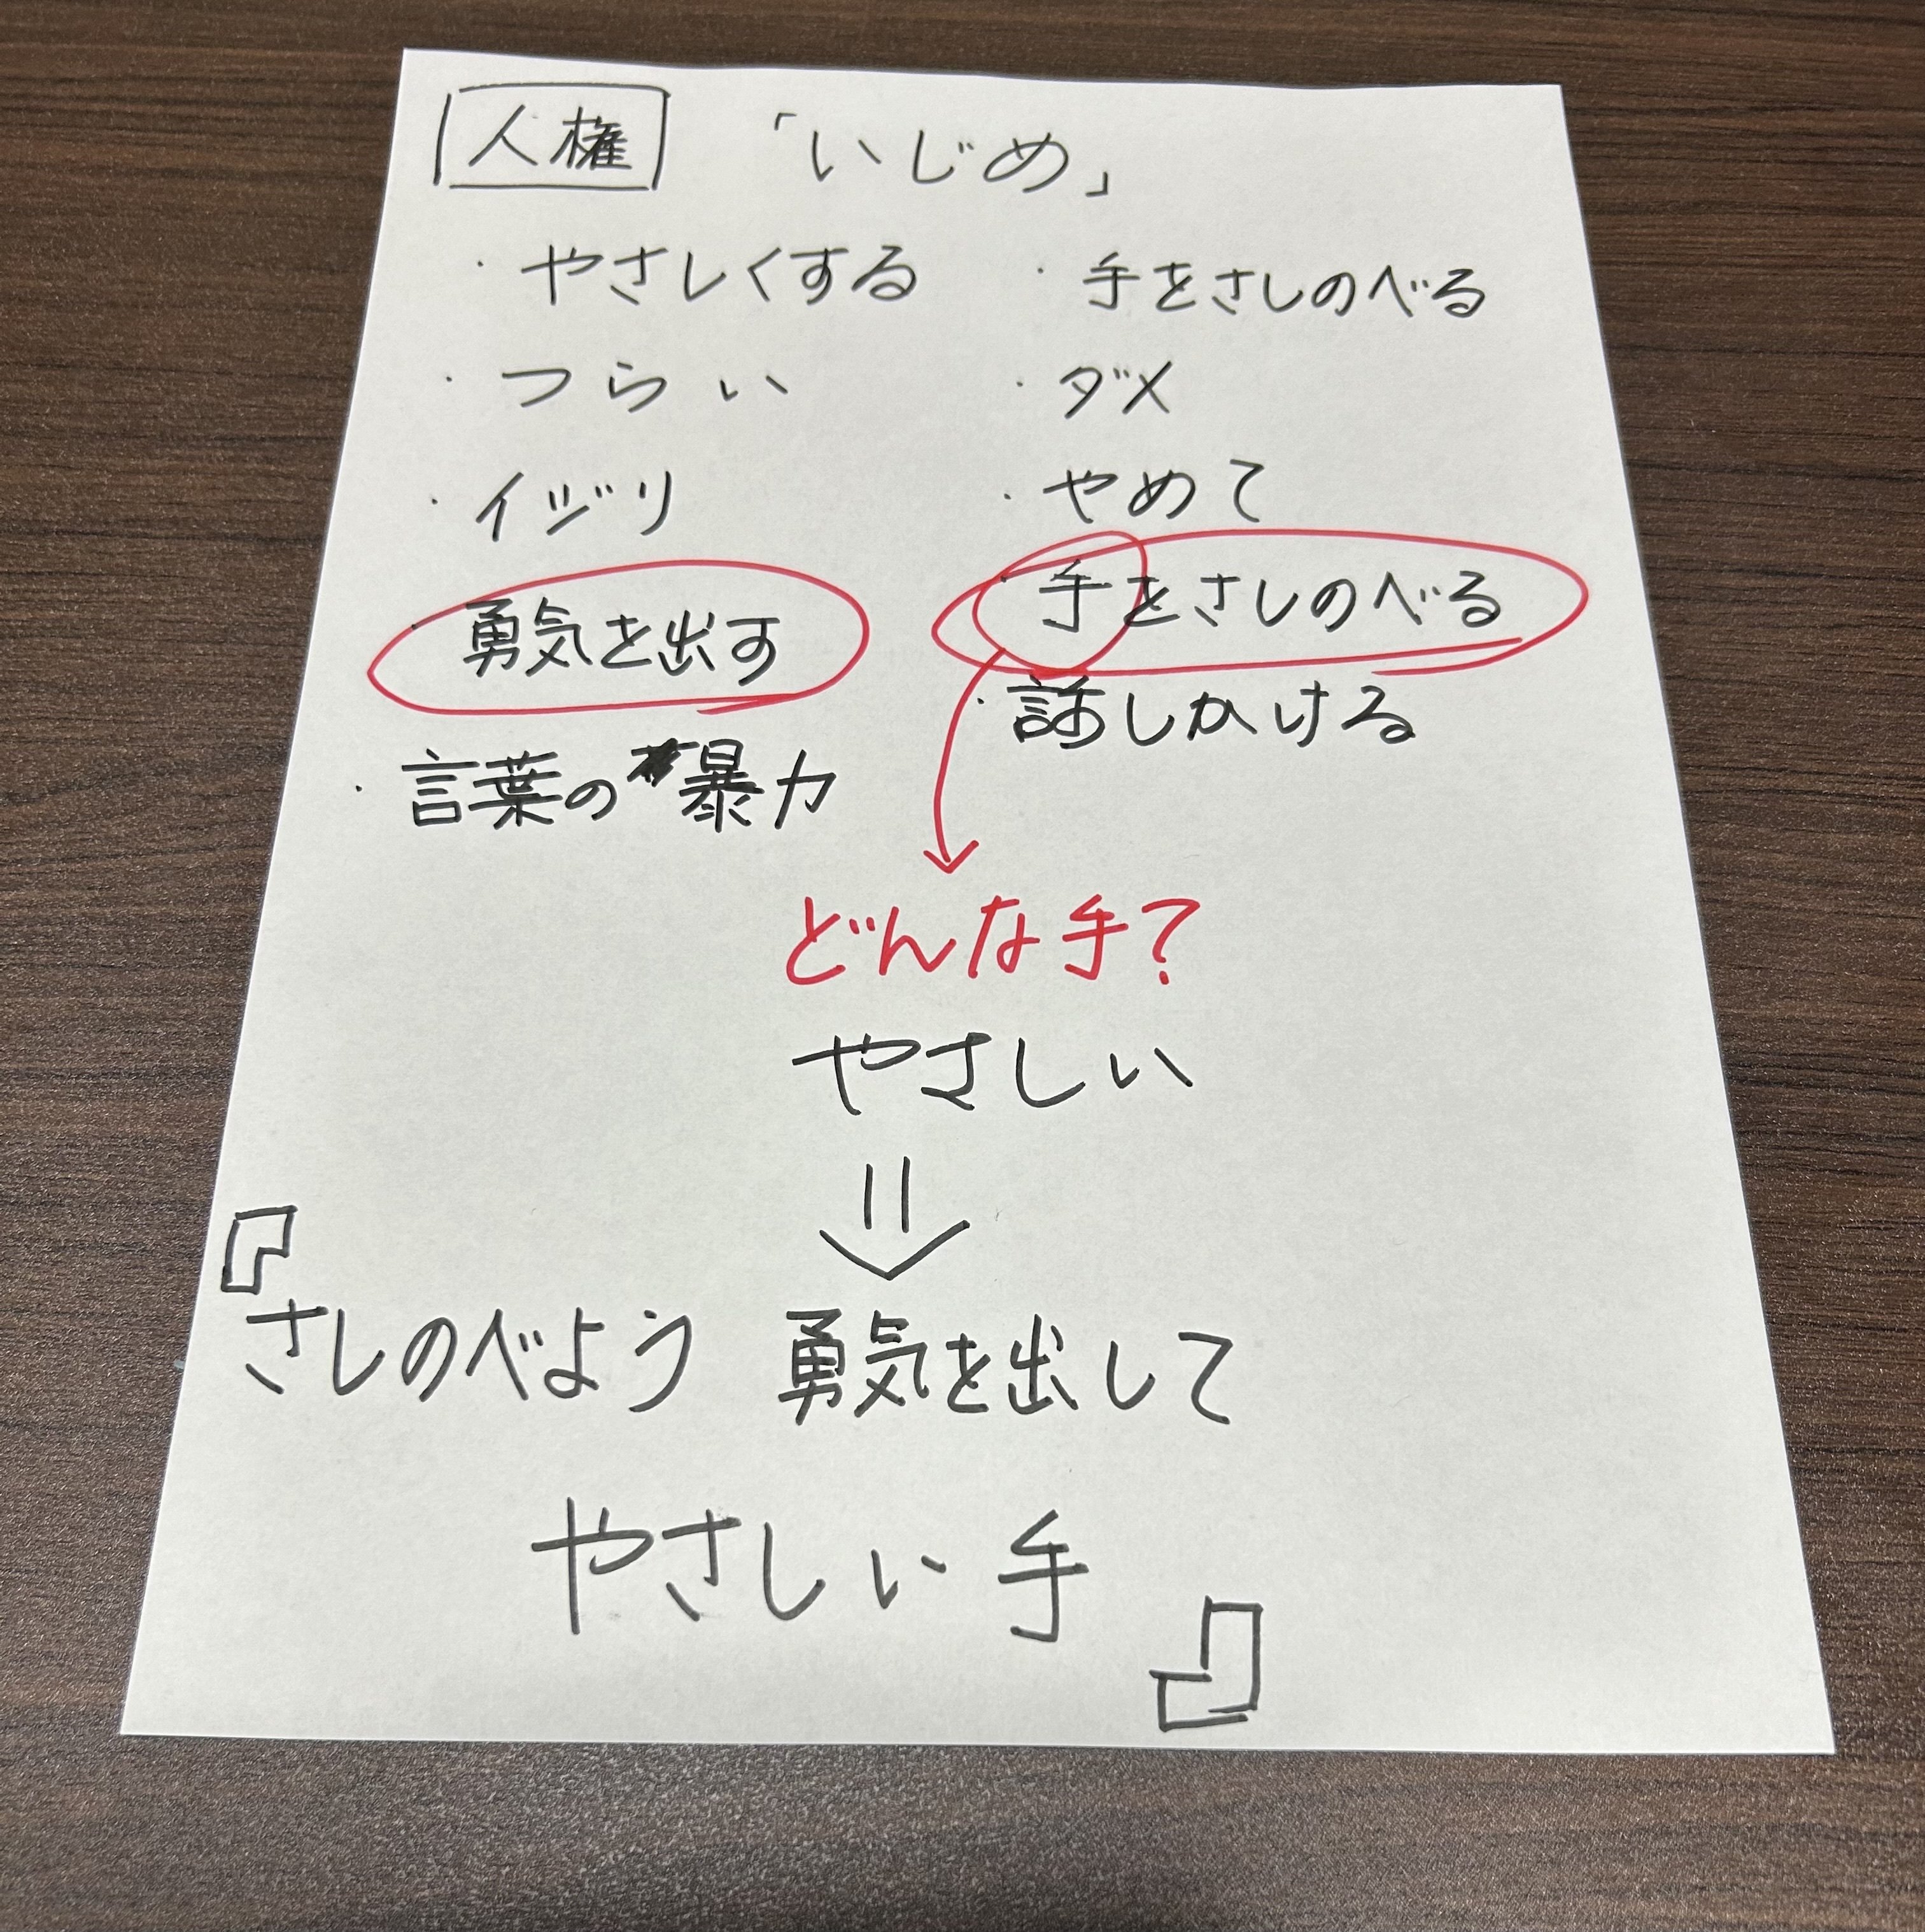 人権 「いじめ」
・やさしくする ・手をさしのべる
・つらい ・ダメ
・イジリ ・やめて
・勇気を出す ・手をさしのべる
・言葉の暴力 ・話しかける
どんな手?
やさしい
『さしのべよう 勇気を出して
やさしい手』